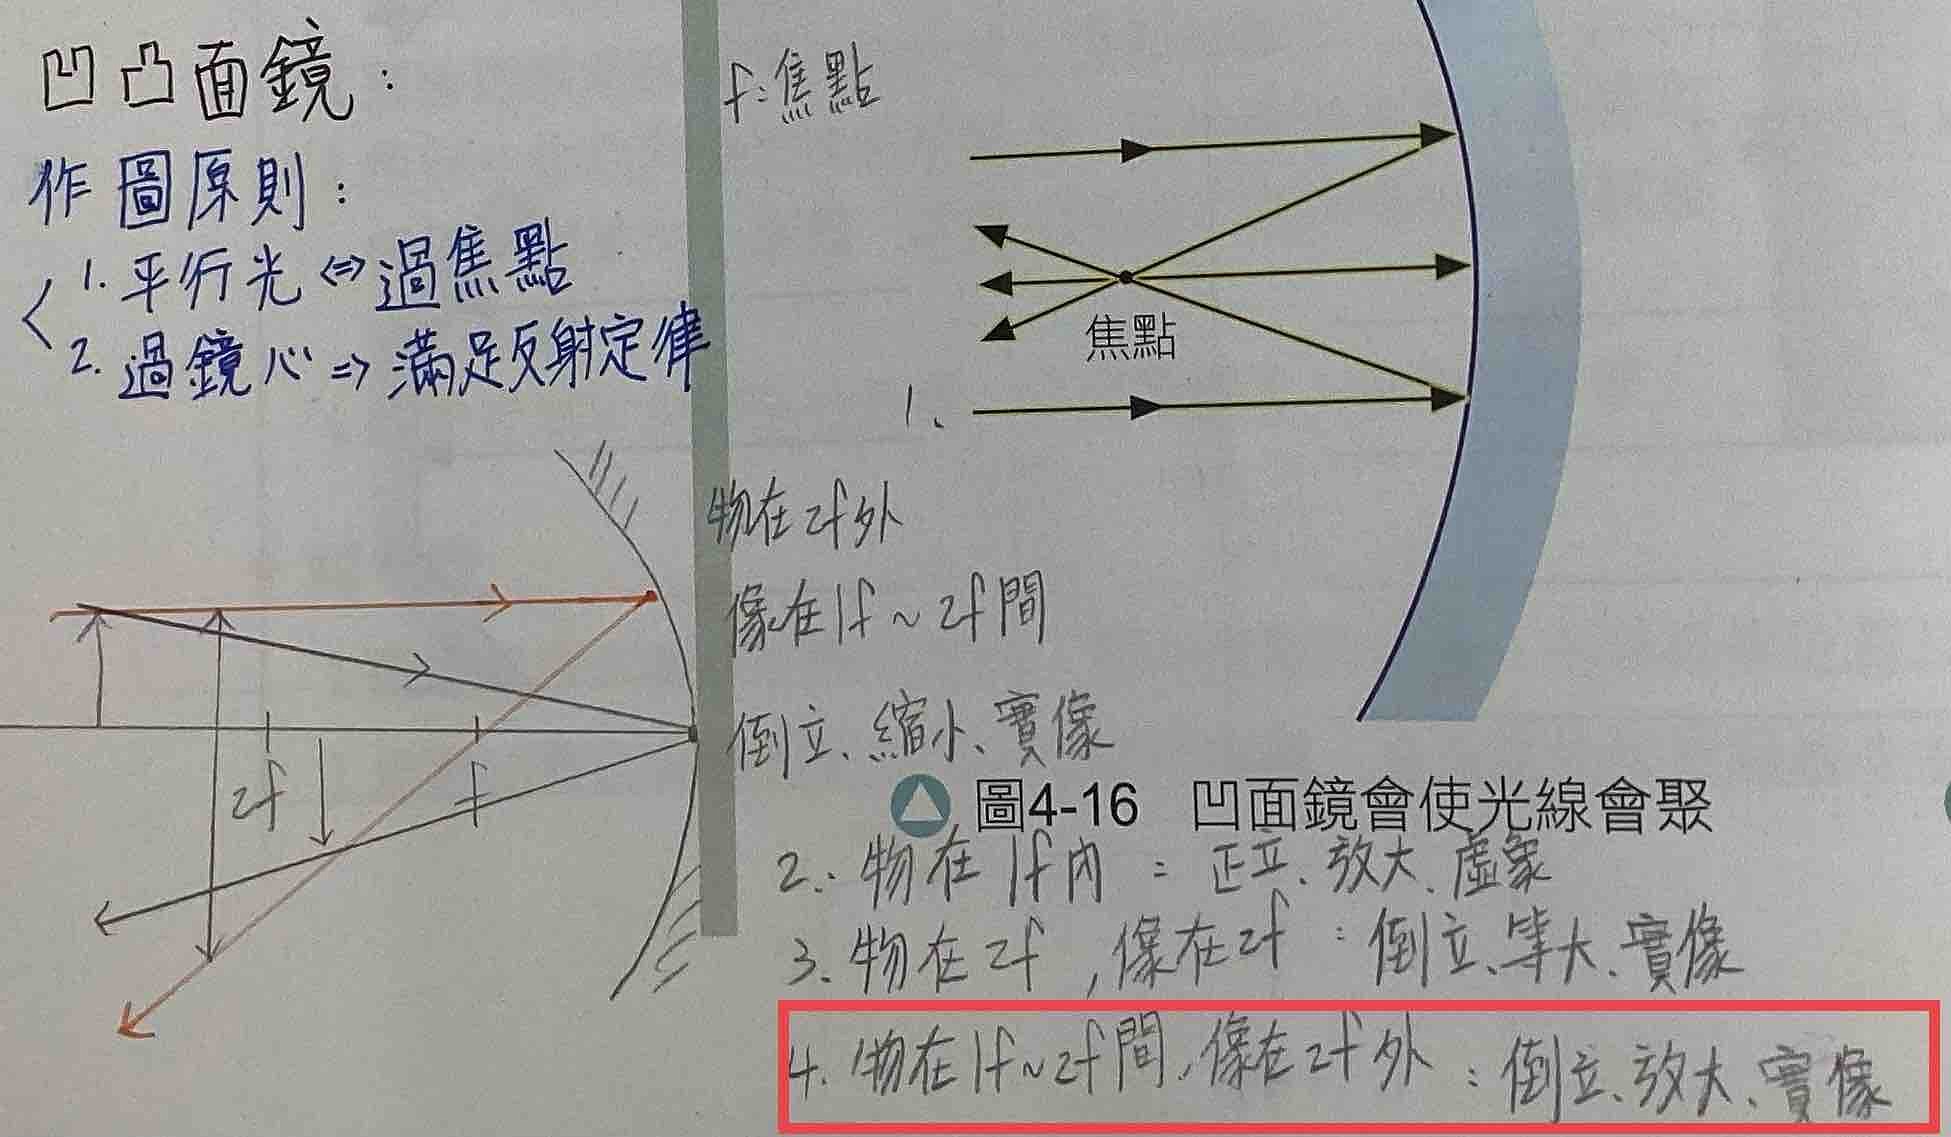 凹凸面鏡：
作圖原則：
1. 平行光 ⇔ 過焦點
2. 過鏡心 ⇒ 滿足反射定律
f：焦點
焦點
1、
物在2f外
像在1f～2f間
倒立、縮小、實像
2f
f
圖4-16 凹面鏡會使光線會聚
2. 物在1f內：正立、放大、虛象
3. 物在2f，像在2f：倒立、等大、實像
4. 物在1f～2f間，像在2f外：倒立、放大、實像